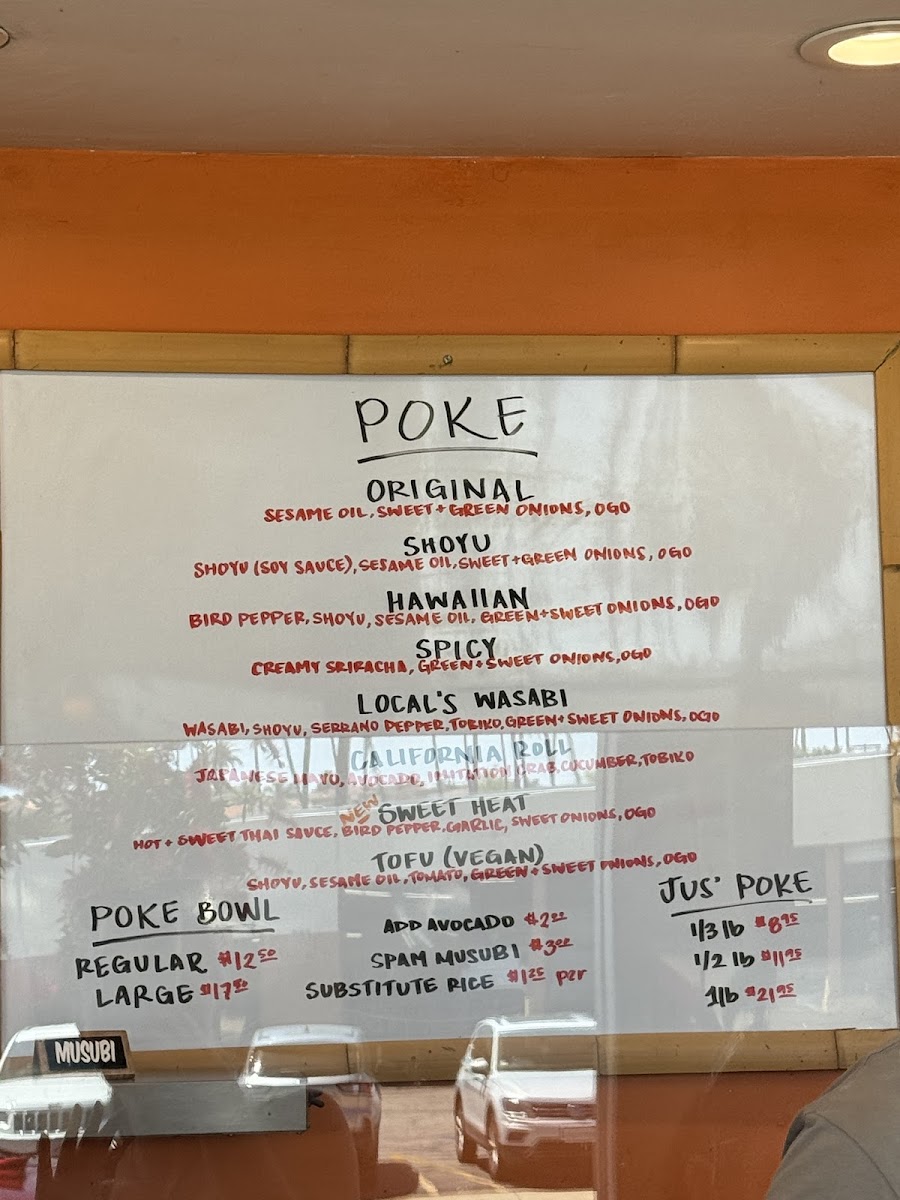 POKE
ORIGINAL
SESAME OIL, SWEET + GREEN ONIONS, OGO
SHOYU
SHOYU (SOY SAUCE), SESAME OIL, SWEET + GREEN ONIONS, OGO
HAWAIIAN
BIRD PEPPER, SHOYU, SESAME OIL, GREEN + SWEET ONIONS, OGO
SPICY
CREAMY SRIRACHA, GREEN + SWEET ONIONS, OGO
LOCAL'S WASABI
WASABI, SHOYU, SERRANO PEPPER, TOBIKO, GREEN + SWEET ONIONS, OGO
CALIFORNIA ROLL
JAPANESE MAYO, AVOCADO, IMITATION CRAB, CUCUMBER, TOBIKO
NEW SWEET HEAT
HOT + SWEET THAI SAUCE, BIRD PEPPER, GARLIC, SWEET ONIONS, OGO
TOFU (VEGAN)
SHOYU, SESAME OIL, TOMATO, GREEN + SWEET ONIONS, OGO
POKE BOWL
REGULAR $12.50
LARGE $17.50
ADD AVOCADO $2.00
SPAM MUSUBI $3.00
SUBSTITUTE RICE $1.25 per
JUS' POKE
1/3 lb $8.95
1/2 lb $11.95
1 lb $21.95
MUSUBI